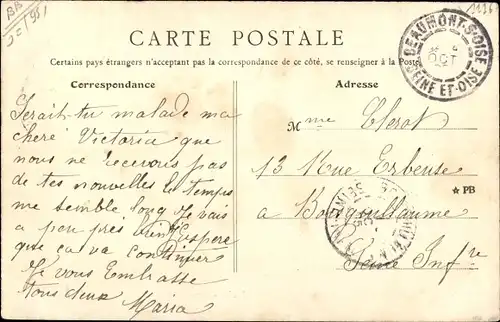 BB
CARTE POSTALE
Certains pays étrangers n'acceptant pas la correspondance de ce côté, se renseigner à la Poste
Correspondance
Adresse
BEAUMONT-S-OISE
OCT
SEINE-ET-OISE
Serait-tu malade ma
chere Victoria que
nous ne recevons pas
de tes nouvelles le temps
me semble long je vais
a peu près bien J'espere
que ça va continuer
Je vous Embrasse
tous deux Maria
Mme Clerot
13 Rue Erbeuse
★ PB
a Bourgoullaume
Seine Infre